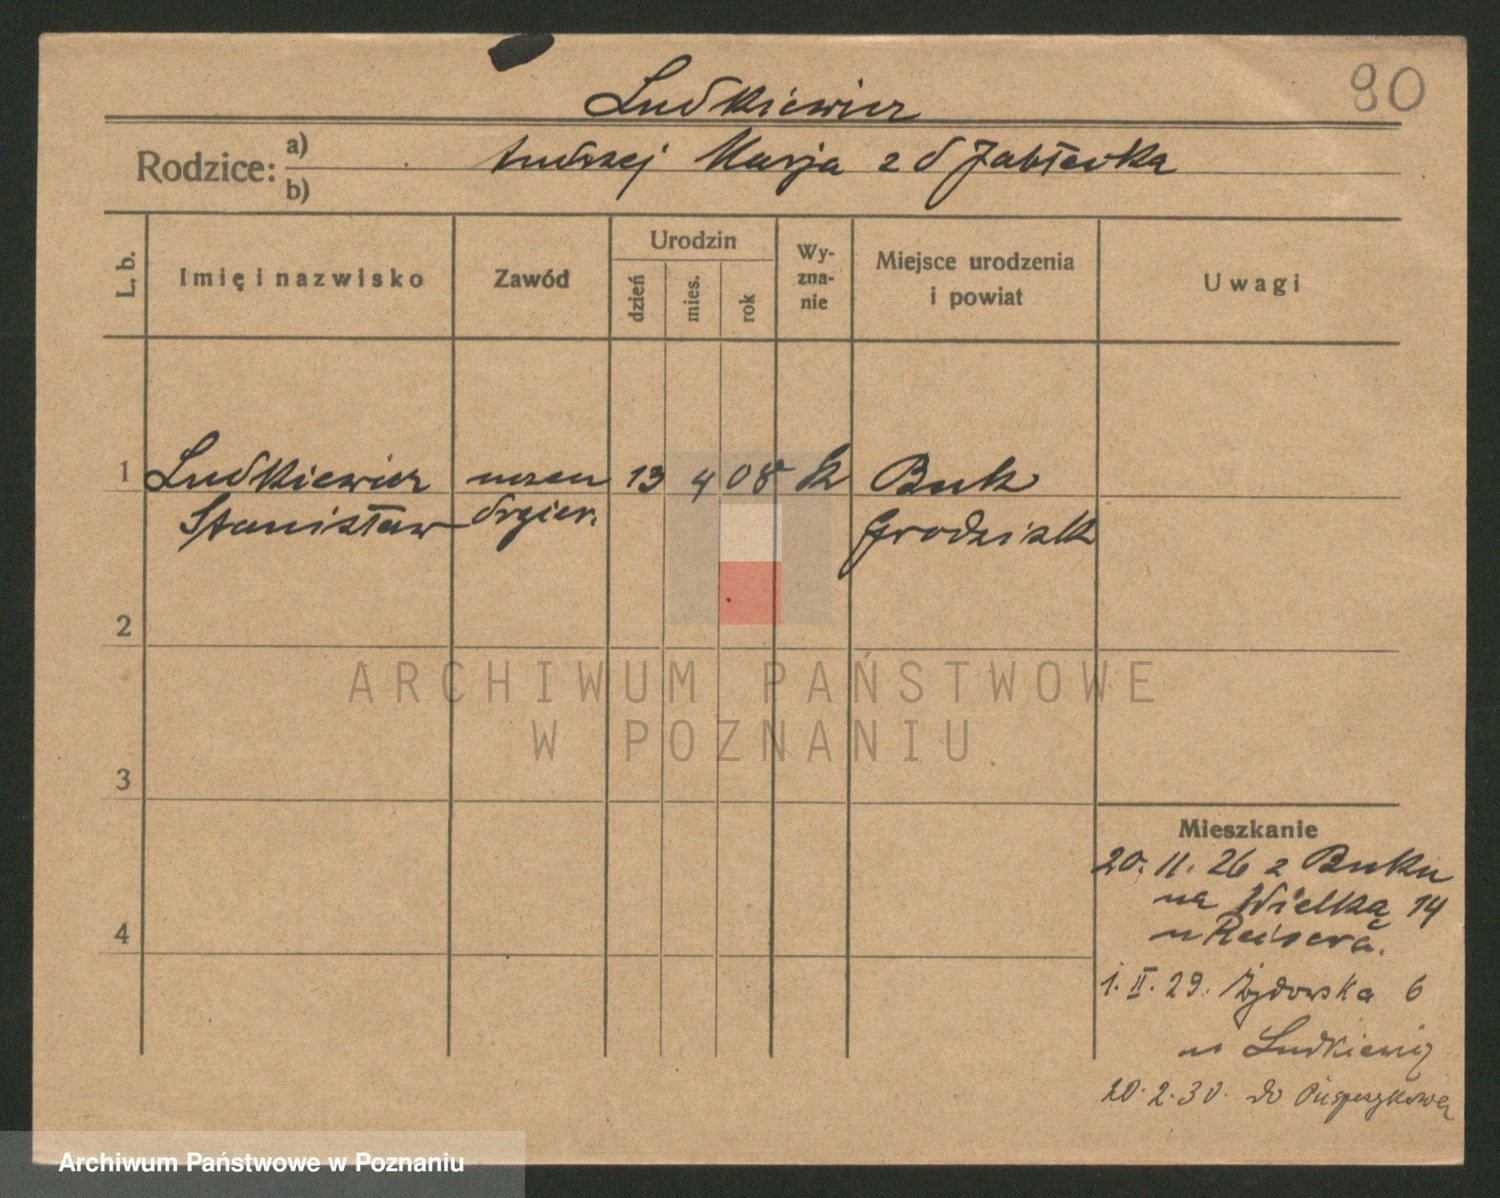 90
Ludkiewicz
Rodzice: a) b)
Andrzej Marja z d Jabłecka
L. b.
Imię i nazwisko
Zawód
Urodzin
dzień
mies.
rok
Wy-
zna-
nie
Miejsce urodzenia
i powiat
Uwagi
1 Ludkiewicz uczeń 13 4 08 k Buk
Stanisław drgier. Grodzisk
2
ARCHIWUM PAŃSTWOWE
W POZNANIU
3
Mieszkanie
20. 11. 26 z Buku
na Wielką 14
u Reisera.
4
1. II. 29. Żydowska 6
u Ludkiewicz
20. 2. 30. do
Archiwum Państwowe w Poznaniu